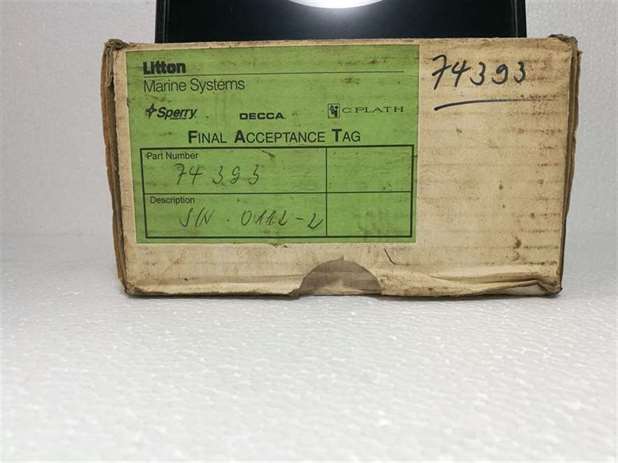 Litton
Marine Systems
74393
Sperry DECCA C.PLATH
FINAL ACCEPTANCE TAG
Part Number
74 393
Description
S/N . 0112-2